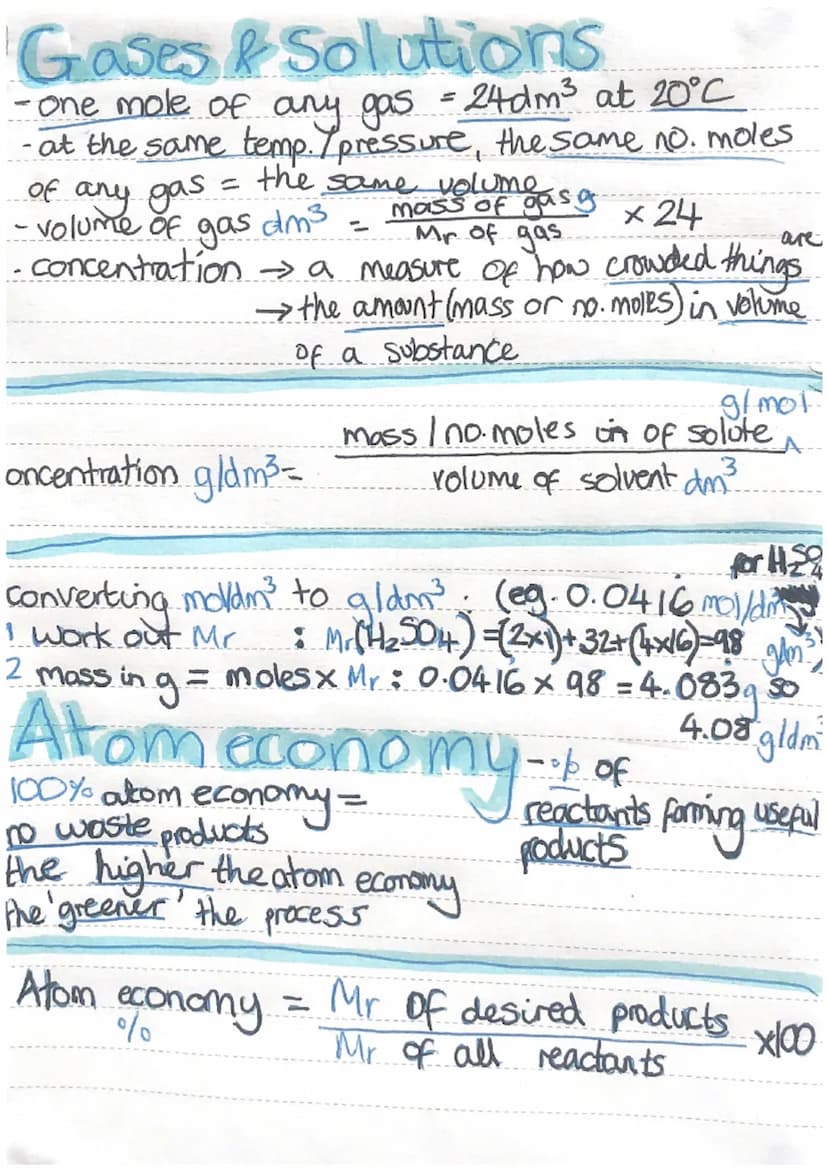 Gases & Solutions
- one mole of any gas = 24dm³ at 20°C
- at the same temp./pressure, the same no. moles
of any gas = the same volume
- volume of gas dm³ = mass of gas g / Mr of gas × 24
- concentration → a measure of how crowded things are
→ the amount (mass or no. moles) in volume
of a substance
g/mol
mass / no. moles in of solute
oncentration g/dm³ =
volume of solvent dm³
for H₂SO₄
converting mol/dm³ to g/dm³. (eg. 0.0416 mol/dm³
1 work out Mr : Mr(H₂SO₄) = (2x1)+32+(4x16)=98 g/dm³)
2 mass in g = moles x Mr : 0.0416 × 98 = 4.083g so
4.08 g/dm³
Atom economy - % of
100% atom economy =
reactants forming useful
no waste products
poducts
the higher the atom economy
the 'greener' the process
Atom economy = Mr of desired products
% x100
Mr of all reactants